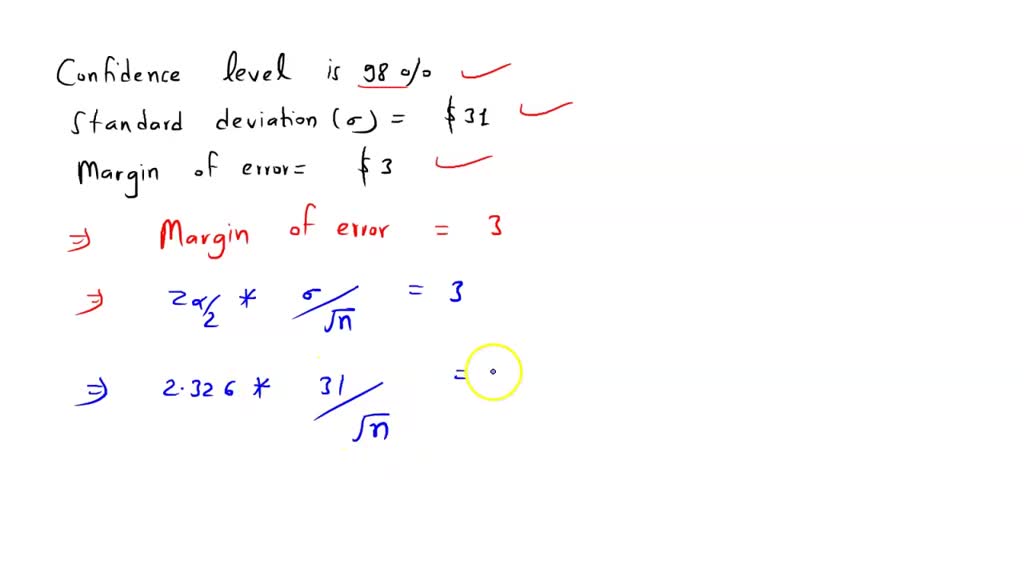 Confidence level is 98 %
Standard deviation (σ) = $ 31
Margin of error= $ 3
⇒ Margin of error = 3
⇒ Zα/2 * σ/√n = 3
⇒ 2.326 * 31/√n =